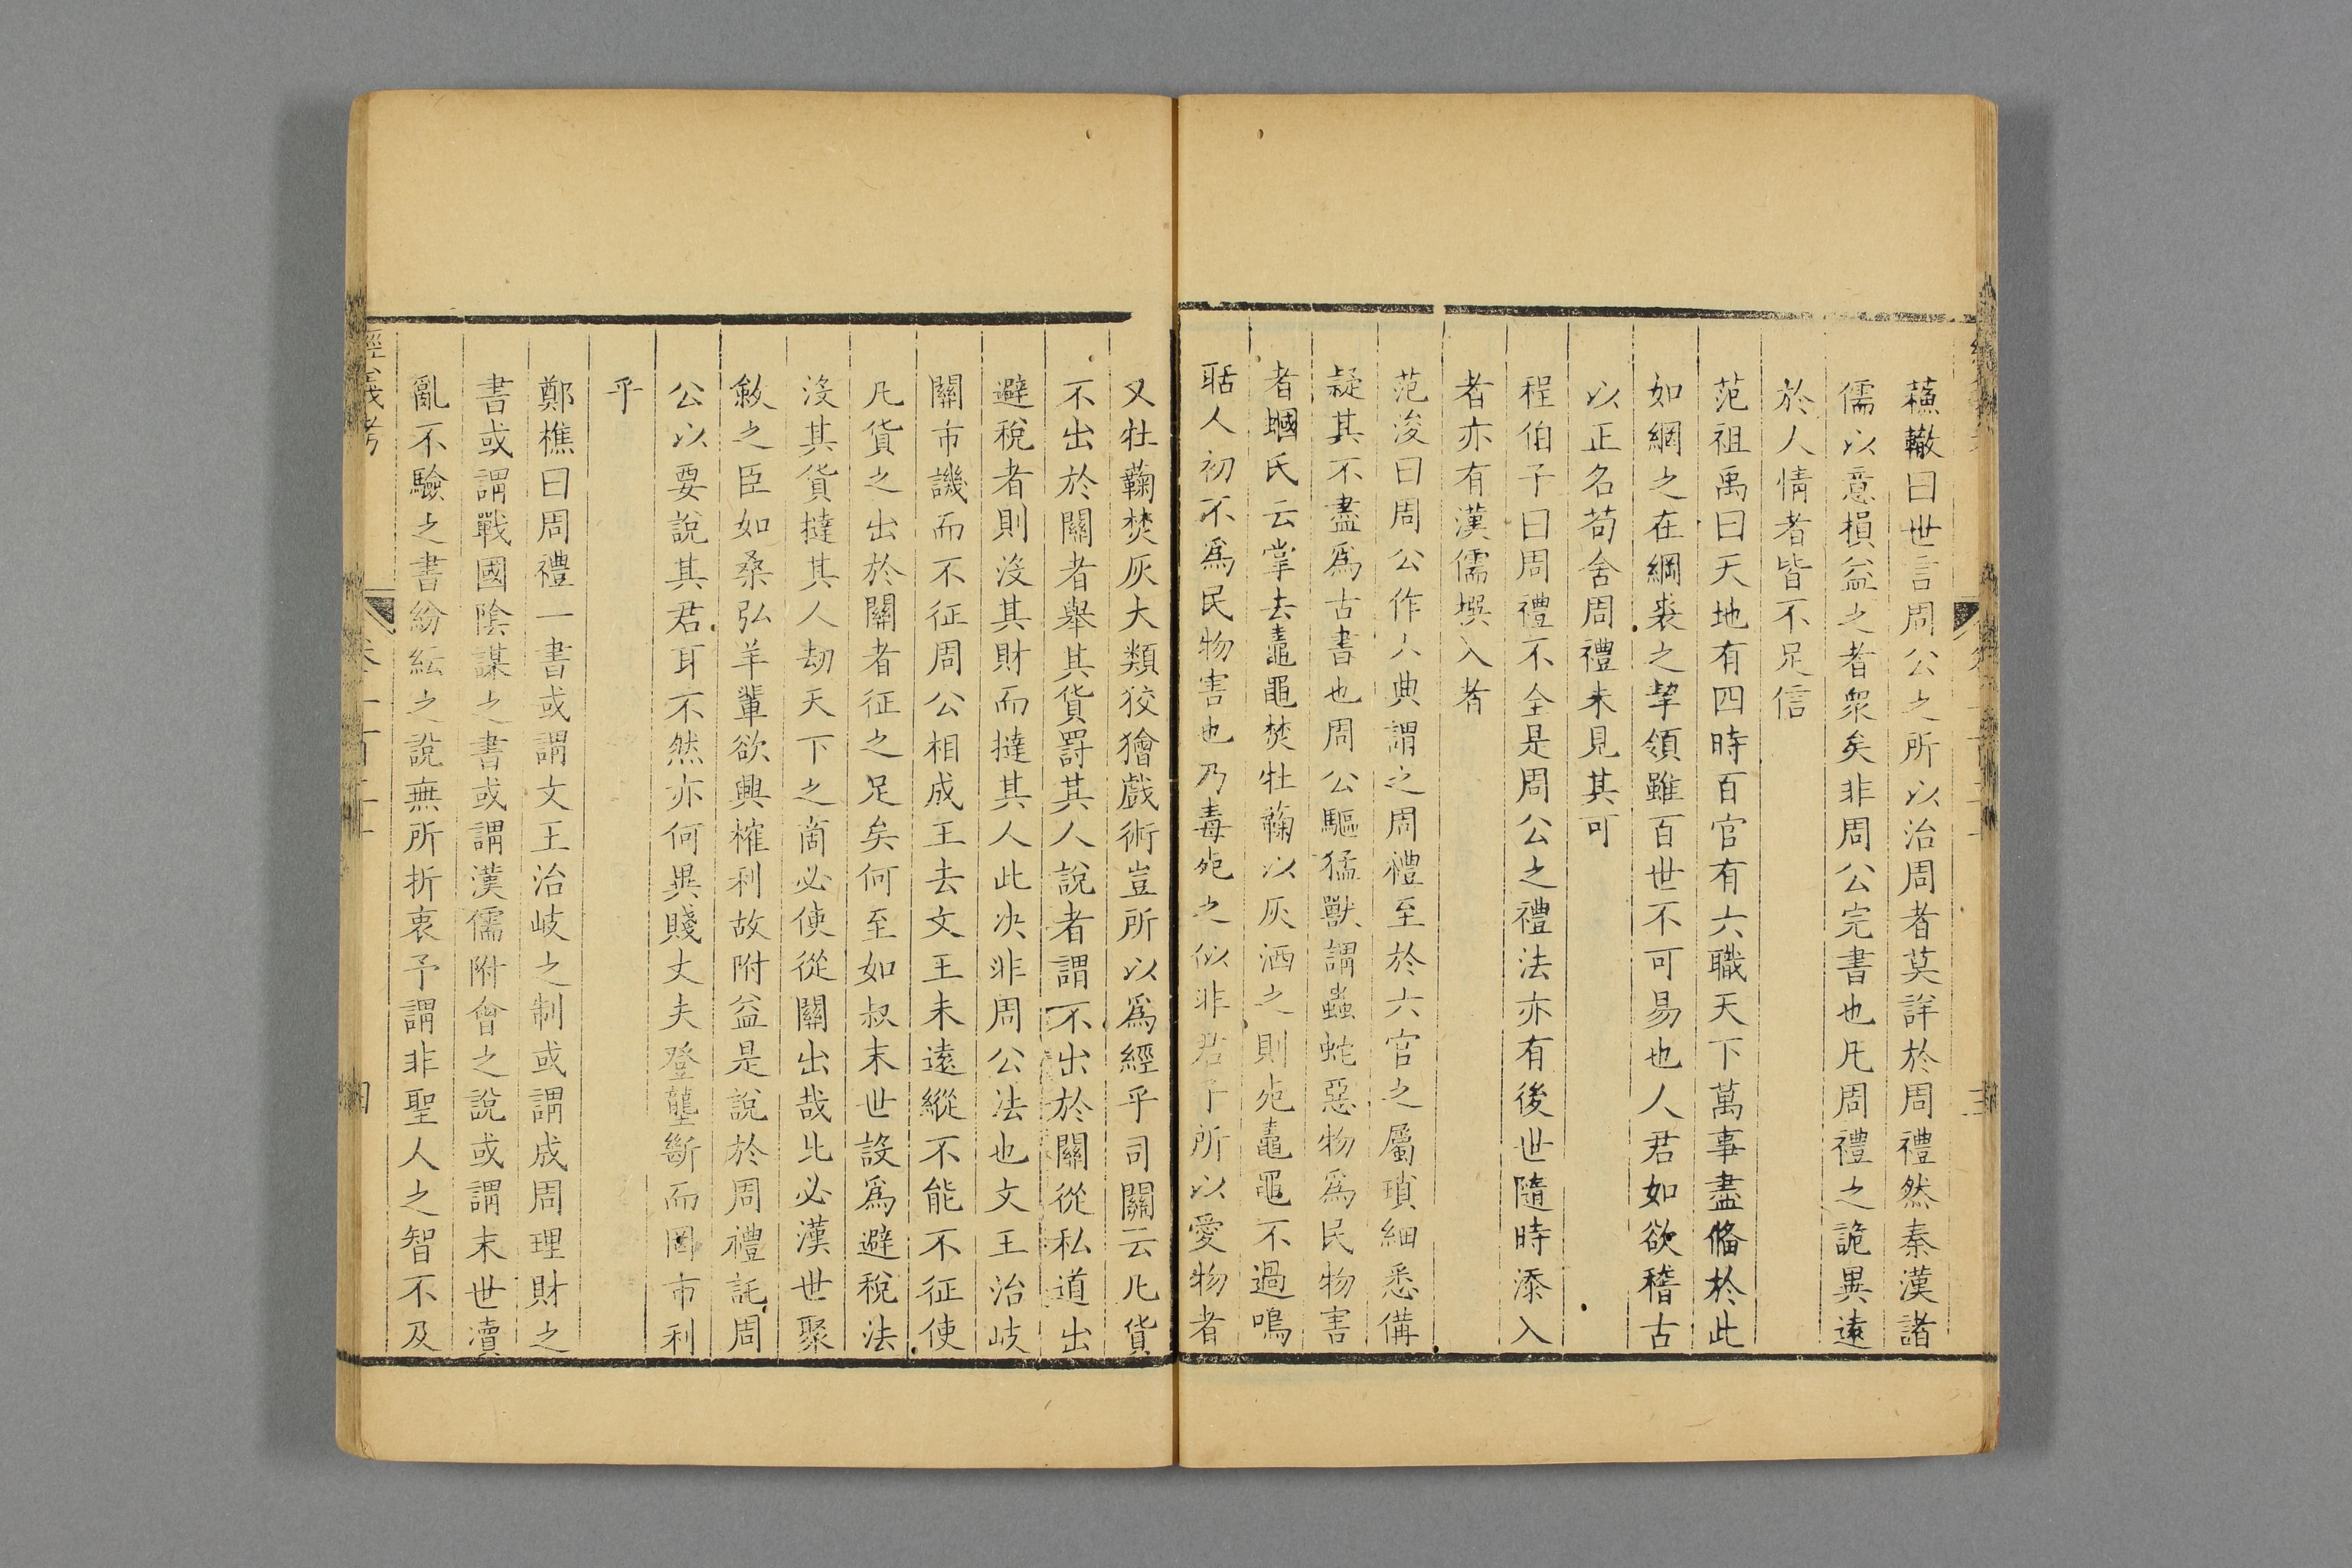 蘓轍曰世言周公之所以治周者莫詳於周禮然秦漢諸
儒以意損益之者衆矣非周公完書也凡周禮之詭異逺
於人情者皆不足信
范祖禹曰天地有四時百官有六職天下萬事盡俻於此
如網之在綱裘之挈領雖百世不可易也人君如欲稽古
以正名苟舍周禮未見其可
程伯子曰周禮不全是周公之禮法亦有後世隨時添入
者亦有漢儒撰入者
范浚曰周公作六典謂之周禮至於六官之屬瑣細悉備
疑其不盡爲古書也周公驅猛獸謂蟲蛇惡物爲民物害
者蟈氏云掌去鼃黽焚牡蘜以灰洒之則死鼃黽不過鳴
聒人初不爲民物害也乃毒死之似非君子所以愛物者
又牡蘜焚灰大類狡獪戲術豈所以爲經乎司關云凡貨
不出於關者舉其貨罸其人說者謂不出於關從私道出
避稅者則沒其財而撻其人此决非周公法也文王治岐
關市譏而不征周公相成王去文王未遠縱不能不征使
凡貨之出於關者征之足矣何至如叔末世設爲避稅法
沒其貨撻其人刼天下之商必使從關出哉此必漢世聚
斂之臣如桑弘羊輩欲興榷利故附益是說於周禮託周
公以要說其君耳不然亦何異賤丈夫登壟斷而罔市利
乎
鄭樵曰周禮一書或謂文王治岐之制或謂成周理財之
書或謂戰國陰謀之書或謂漢儒附會之說或謂末世瀆
亂不驗之書紛紜之說無所折衷予謂非聖人之智不及
經義考
卷一百二十
四